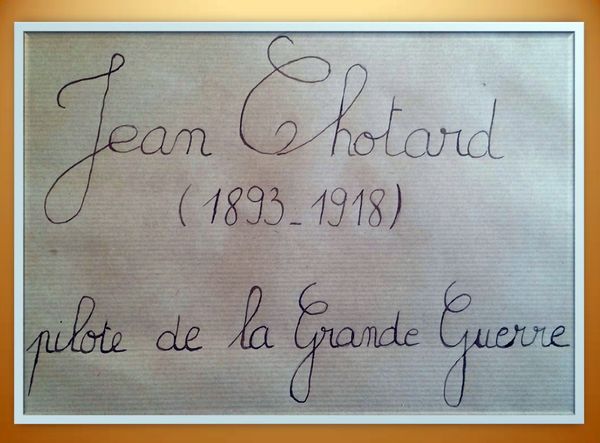 Jean Chotard
(1893-1918)
pilote de la Grande Guerre